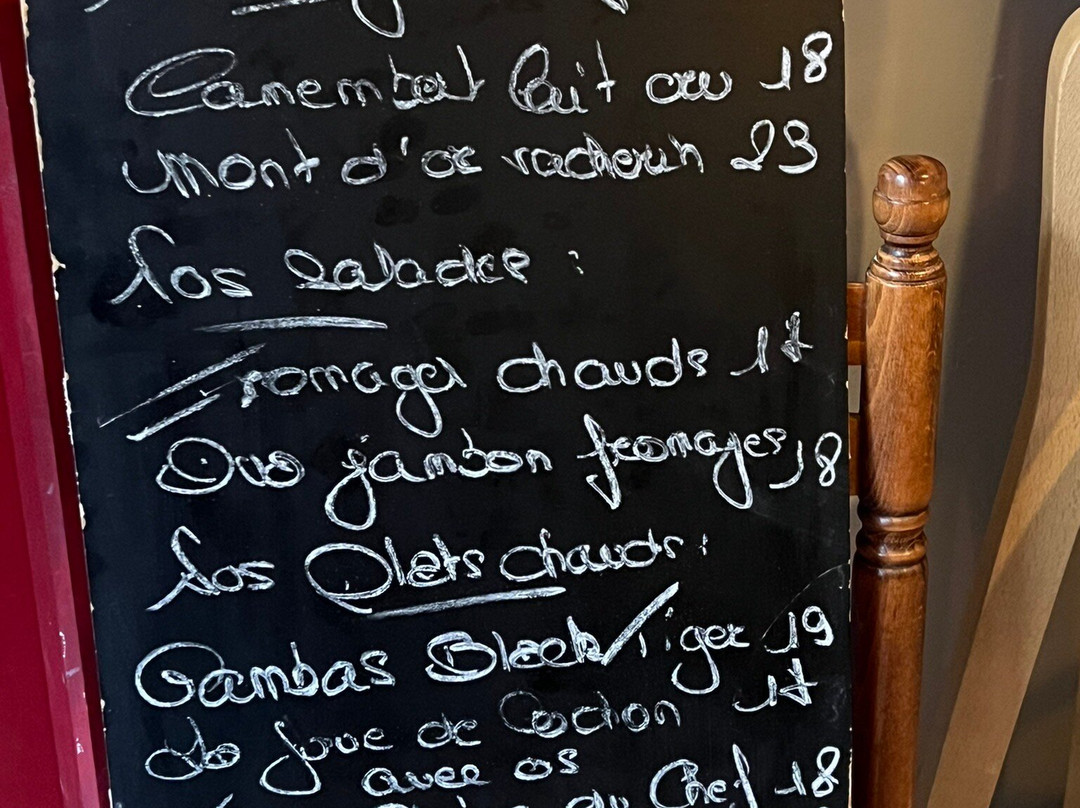 Camembert lait cru 18
Mont d'or vacherin 23
Nos salades :
Fromager chauds 17
Duo jambon fromages 18
Nos Plats chauds :
Gambas Black Tiger 19
Joue de Cochon 17
avec os
du Chef 18